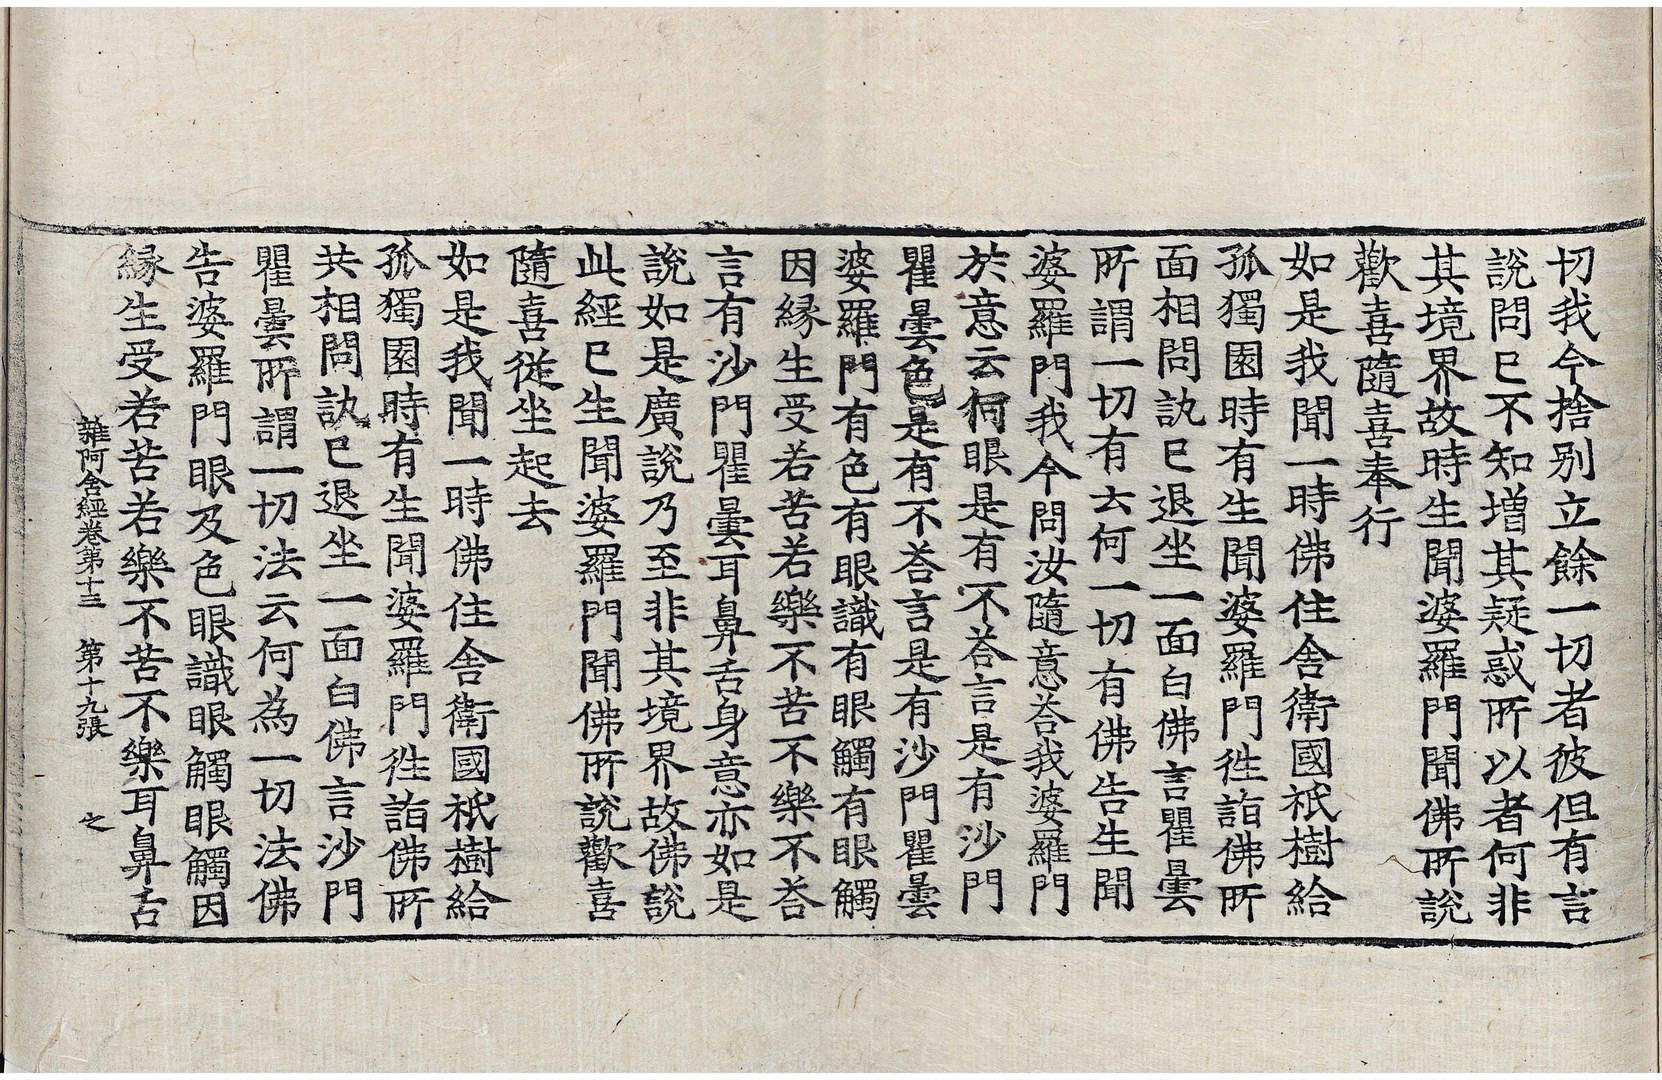 切我今捨別立餘一切者彼但有言
說問已不知增其疑惑所以者何非
其境界故時生聞婆羅門聞佛所說
歡喜隨喜奉行
如是我聞一時佛住舍衛國祇樹給
孤獨園時有生聞婆羅門往詣佛所
面相問訊已退坐一面白佛言瞿曇
所謂一切有云何一切有佛告生聞
婆羅門我今問汝隨意荅我婆羅門
於意云何眼是有不荅言是有沙門
瞿曇色是有不荅言是有沙門瞿曇
婆羅門有色有眼識有眼觸有眼觸
因緣生受若苦若樂不苦不樂不荅
言有沙門瞿曇耳鼻舌身意亦如是
說如是廣說乃至非其境界故佛說
此經已生聞婆羅門聞佛所說歡喜
隨喜從坐起去
如是我聞一時佛住舍衛國祇樹給
孤獨園時有生聞婆羅門往詣佛所
共相問訊已退坐一面白佛言沙門
瞿曇所謂一切法云何為一切法佛
告婆羅門眼及色眼識眼觸眼觸因
緣生受若苦若樂不苦不樂耳鼻舌
雜阿含經卷第十三 第十九張 之